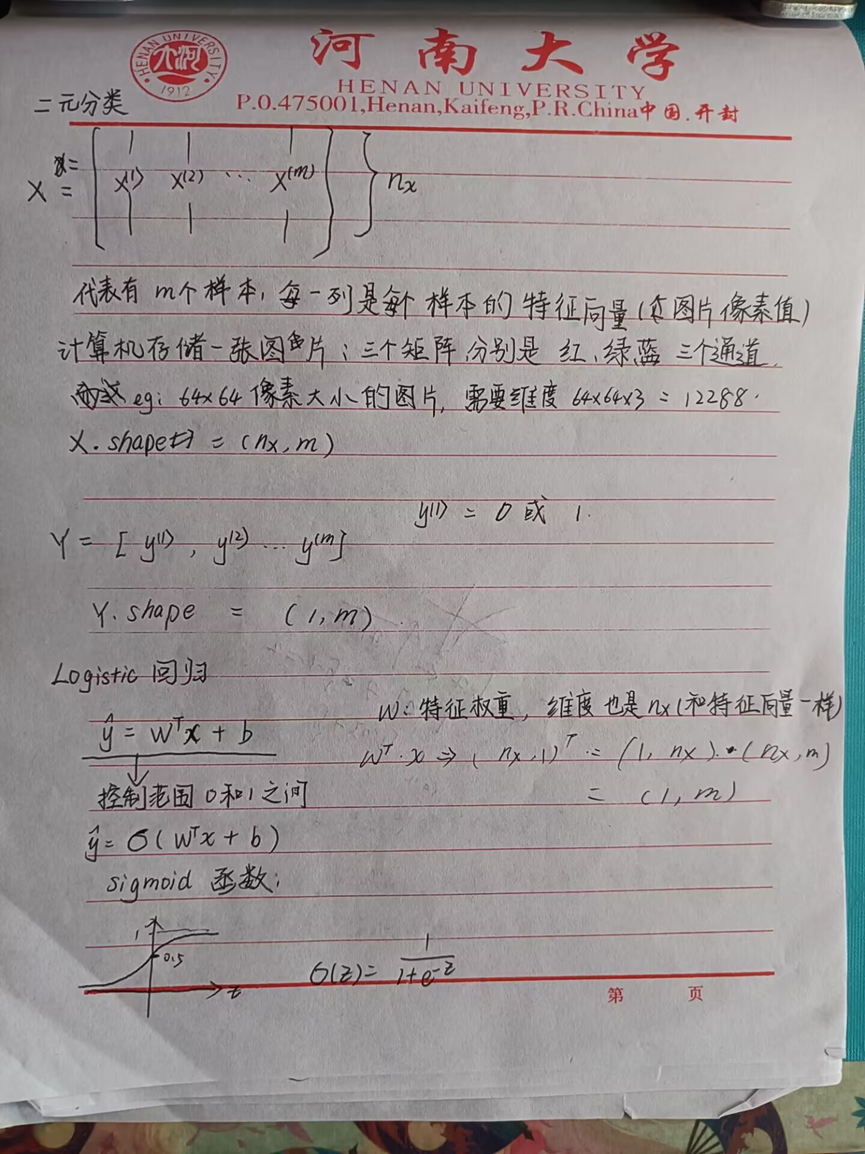 河南大学
HENAN UNIVERSITY
1912
HENAN UNIVERSITY
P.O.475001,Henan,Kaifeng,P.R.China中国.开封
二元分类
x =
X = [ x⁽¹⁾ x⁽²⁾ … x⁽ᵐ⁾ ] } nx
代表有 m个样本，每一列是每个样本的特征向量(图片像素值)
计算机存储一张图片：三个矩阵,分别是 红、绿蓝 三个通道,
eg: 64×64 像素大小的图片，需要维度 64×64×3 = 12288.
X.shape = (nx, m)
y⁽¹⁾ = 0 或 1.
Y = [ y⁽¹⁾, y⁽²⁾ … y⁽ᵐ⁾]
Y.shape = (1, m)
Logistic 回归
w: 特征权重，维度也是 nx(和特征向量一样)
ŷ = wᵀx + b
wᵀ·x ⇒ (nx,1)ᵀ = (1, nx)·(nx, m)
控制范围 0和1之间
= (1, m)
ŷ = σ(wᵀx + b)
sigmoid 函数:
1
0.5
σ(z) = 1/(1+e⁻ᶻ)
z
第 页